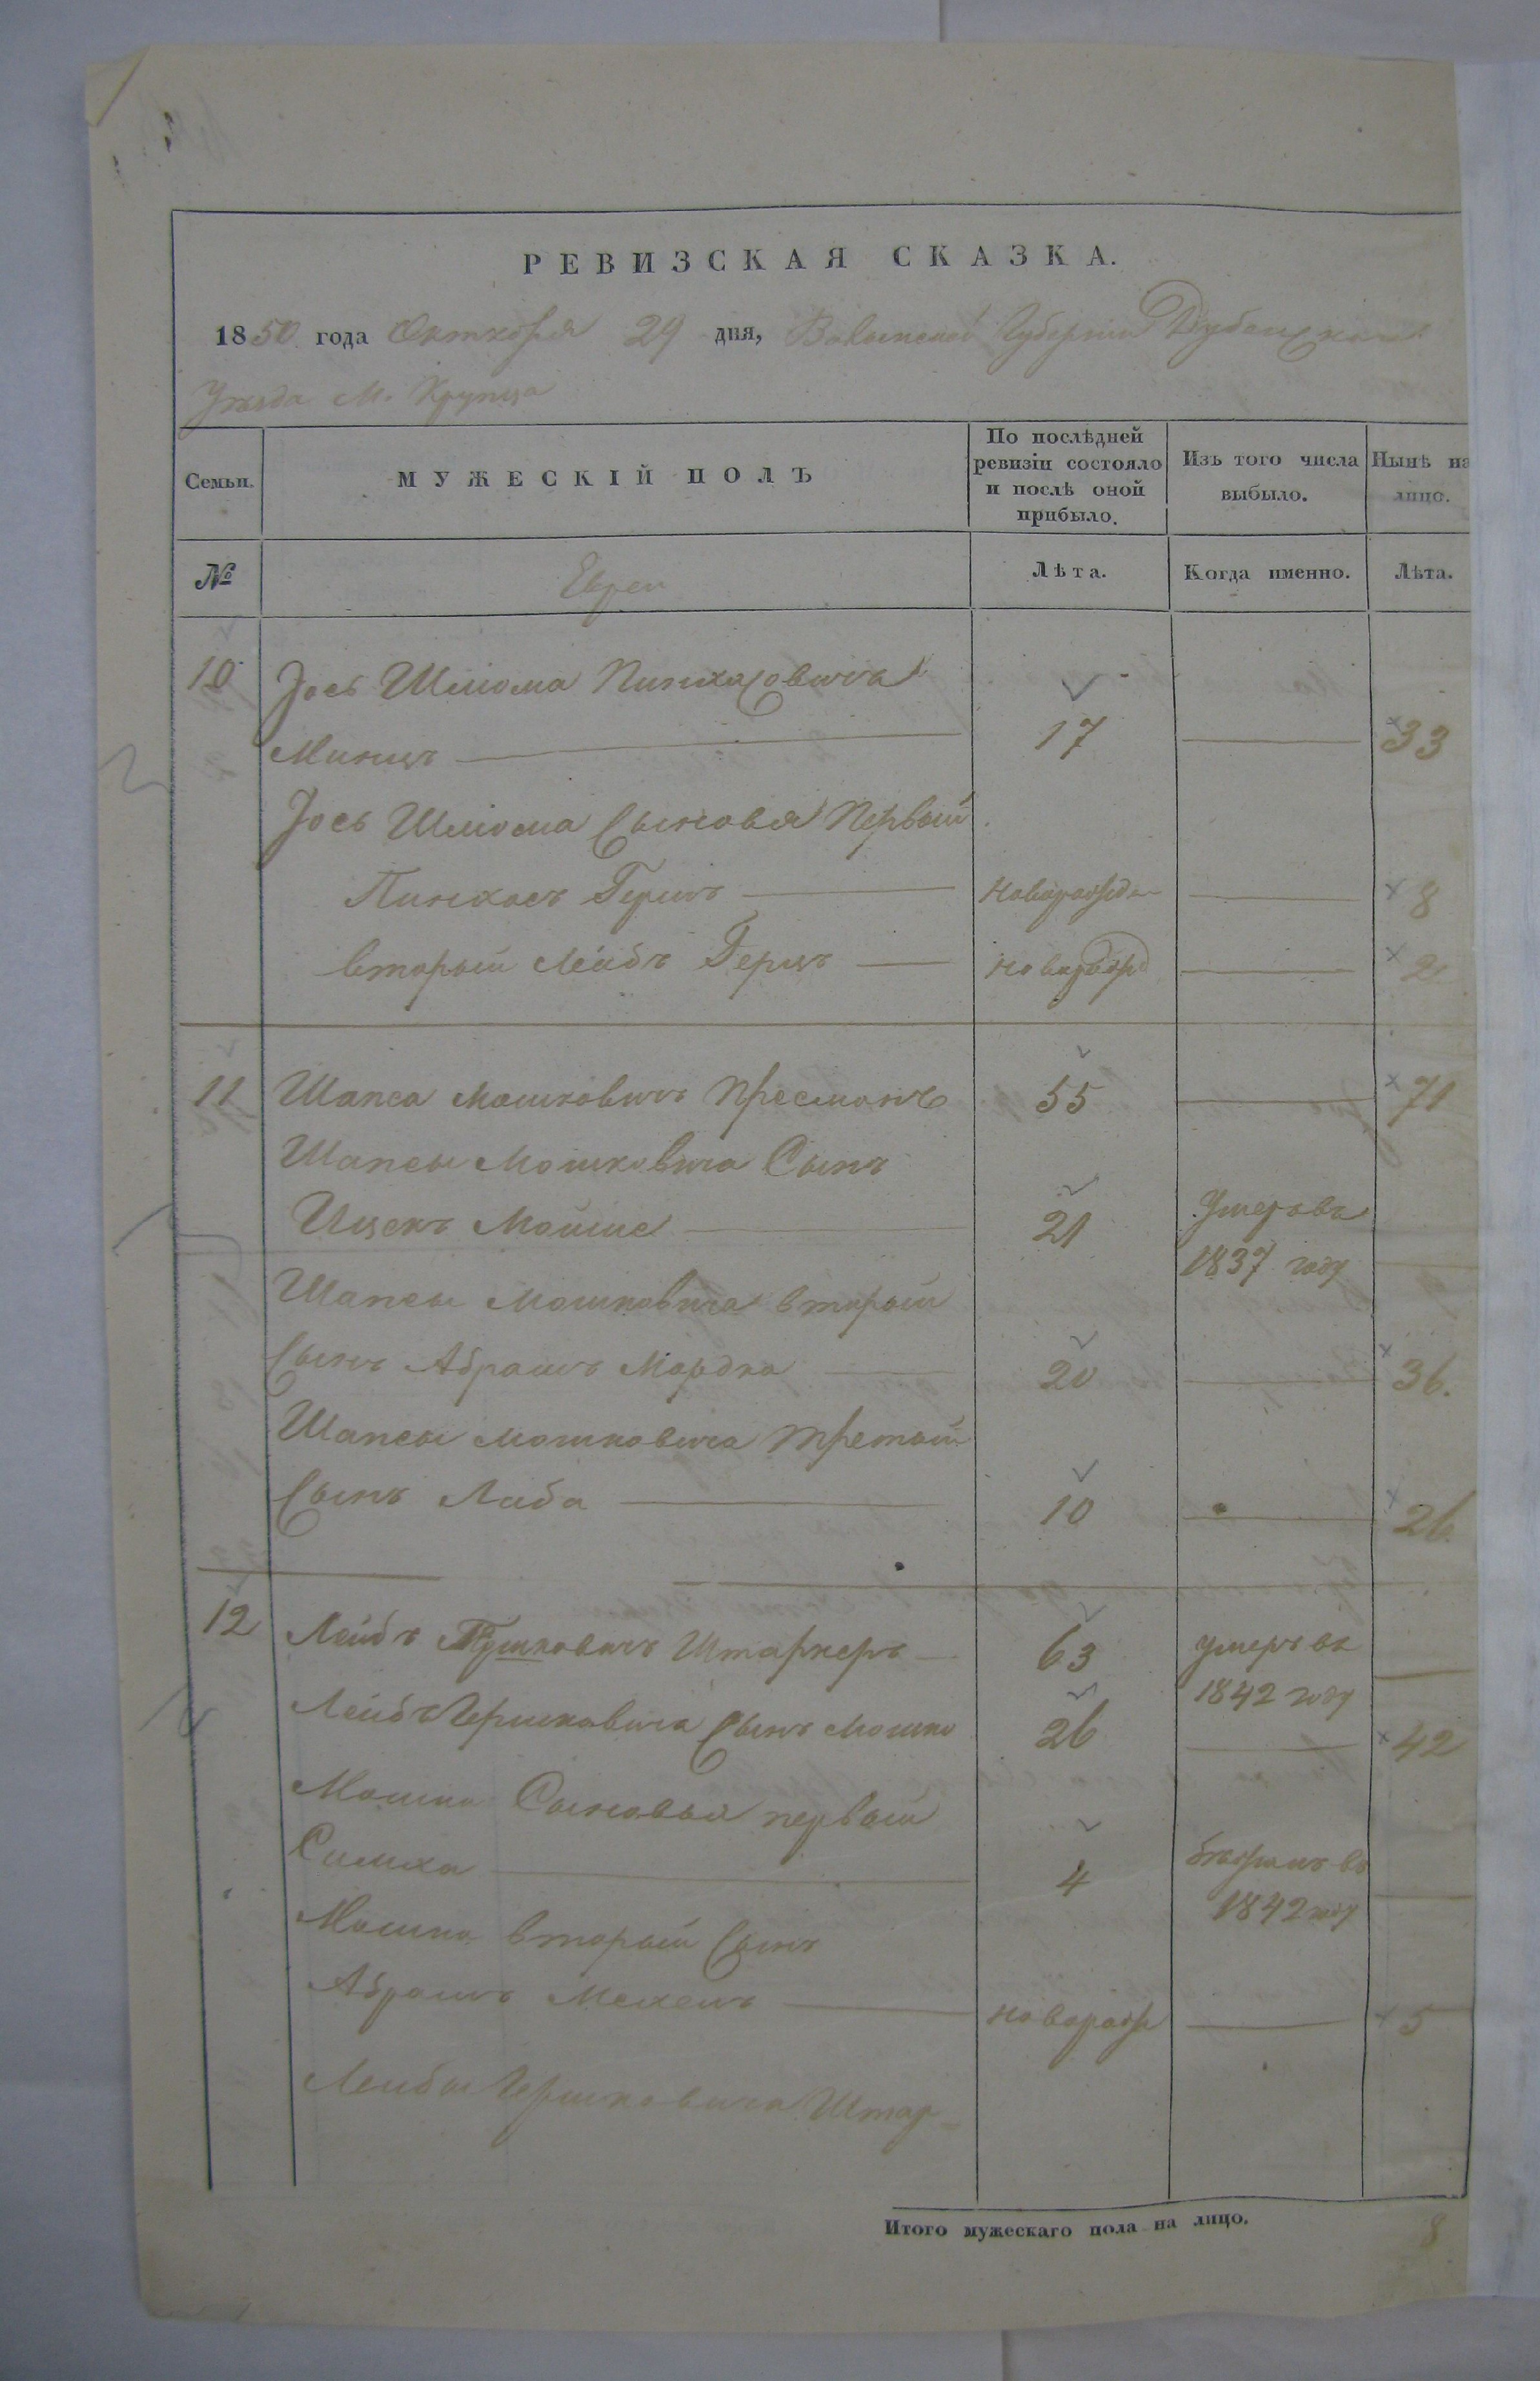 РЕВИЗСКАЯ СКАЗКА.
1850 года Октября 29 дня, Волынской Губернии Дубенского
Уезда М. Крупца
Семьи. МУЖЕСКІЙ ПОЛЪ По послѣдней ревизіи состояло и послѣ оной прибыло. Изъ того числа выбыло. Нынѣ на лицо.
№ Евреи Лѣта. Когда именно. Лѣта.
10 Іось Шлиома Пинхасовича
Минцъ 17 33
Іось Шлиома Сыновья Первый
Пинхасъ Гершъ новорожден 8
вторый Лейбъ Герцъ новорожд 2
11 Шапса Мошковичъ Пресманъ 55 71
Шапсы Мошковича Сынъ
Ицекъ Мойше 21 Умеръ въ
1837 году
Шапсы Мошковича вторый
Сынъ Абрамъ Мордко 20 36.
Шапсы Мошковича третый
Сынъ Лейба 10 26.
12 Лейбъ Гершковичъ Штаркеръ 63 умеръ въ
1842 году
Лейбъ Гершковича Сынъ Мошко 26 42
Мошко Сыновья первый
Симха 4 бежалъ въ
1842 году
Мошко вторый Сынъ
Абрамъ Мехель новорож 5
Лейбы Гершковича Штар-
Итого мужескаго пола на лицо. 8